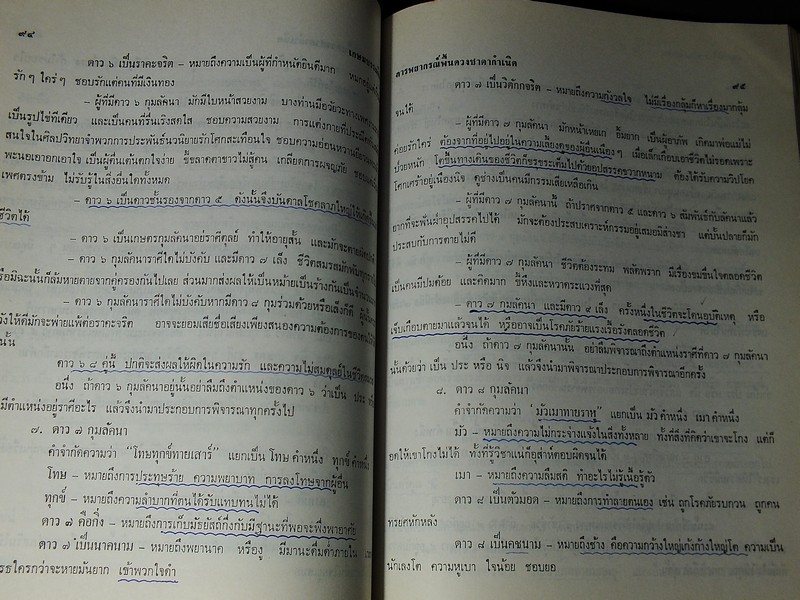 ๙๔
ดาว ๖ เป็นราคะจริต - หมายถึงความเป็นผู้ที่กำหนัดยินดีมาก
รักๆ ใคร่ๆ ชอบรักแต่คนที่มีเงินทอง
- ผู้ที่มีดาว ๖ กุมลัคนา มักมีใบหน้าสวยงาม บางท่านมีอวัยวะทางเพศ
เป็นรูปไข่ทีเดียว และเป็นคนที่รื่นเริงสดใส ชอบความสวยงาม การแต่งกายที่ประณีต
สนใจในศิลปวิทยาจำพวกการประพันธ์นวนิยายรักโศกสะเทือนใจ ชอบความอ่อนหวาน
พะนอเอาอกเอาใจ เป็นผู้ตื่นเต้นตกใจง่าย ขี้ขลาดตาขาวไม่สู้คน เกลียดการผจญภัย
เพศตรงข้าม ไม่รับรู้ในสิ่งอื่นใดทั้งหมด
- ดาว ๖ เป็นดาวชั้นรองจากดาว ๕ ดังนั้นจึงบันดาลโชคลาภใหญ่ให้
ชีวิตได้
- ดาว ๖ เป็นเกษตรกุมลัคนาอยู่ราศีตุลย์ ทำให้อายุสั้น และมักจะตาย
- ดาว ๖ กุมลัคนาราศีใดไม่บังคับ และมีดาว ๗ เล็ง ชีวิตสมรสมักพบ
หรือมิฉะนั้นก็ล้มหายตายจากคู่ครองกันไปเลย ส่วนมากส่งผลให้เป็นหม้ายเป็นร่างกันเป็น
- ดาว ๖ กุมลัคนาราศีใดไม่บังคับหากมีดาว ๘ กุมร่วมด้วยหรือเล็งก็ดี
วังให้ดีมักจะพ่ายแพ้ต่อราคะจริต อาจจะยอมเสียชื่อเสียงเพียงสนองความต้องการของตน
นั้น
ดาว ๖ ๘ คู่นี้ ปกติจะส่งผลให้ผิดในความรัก และความไม่สมดุลย์ในชีวิต
อนึ่ง ถ้าดาว ๖ กุมลัคนาอยู่นั้นอย่าลืมถึงตำแหน่งของดาว ๖ ว่าเป็น ประ
มีตำแหน่งอยู่ราศีอะไร แล้วจึงนำมาประกอบการพิจารณาทุกครั้งไป
๗. ดาว ๗ กุมลัคนา
คำจำกัดความว่า "โทษทุกข์ทายเสาร์" แยกเป็น โทษ คำหนึ่ง ทุกข์ คำหนึ่ง
โทษ - หมายถึงการประทุษร้าย ความพยาบาท การลงโทษจากผู้อื่น
ทุกข์ - หมายถึงความลำบากที่ตนได้รับแทบทนไม่ได้
ดาว ๗ คือกิ่ง - หมายถึงการเก็บมัธยัสถ์กึ่งกับมีฐานะที่พอจะพึ่งพาอาศัย
ดาว ๗ เป็นนาคนาม - หมายถึงพญานาค หรืองู มีมานะดื่มด่ำภายใน
รธใครกว่าจะหายมันยาก เข้าพวกใจดำ
การพยากรณ์พื้นดวงชาตากำเนิด
๙๕
ดาว ๗ เป็นวิตักกจริต - หมายถึงความกังวลใจ ไม่มีเรื่องกลุ้มก็หาเรื่องมากลุ้ม
จนได้
- ผู้ที่มีดาว ๗ กุมลัคนา มักหน้าเหยเก ยิ้มยาก เป็นผู้อาภัพ เกิดมาพ่อแม่ไม่
ค่อยรักใคร่ ต้องจากที่อยู่ไปอยู่ในความเลี้ยงของผู้อื่นเนืองๆ เมื่อเด็กเกือบเอาชีวิตไม่รอดเพราะ
ป่วยหนัก โตขึ้นทางเดินของชีวิตก็ขรุขระเต็มไปด้วยอุปสรรคขวากหนาม ต้องได้รับความวิปโยค
โศกเศร้าอยู่เนืองนิจ ดูช่างเป็นคนมีกรรมเสียเหลือเกิน
- ผู้ที่มีดาว ๗ กุมลัคนานี้ ถ้าปรากฏว่ามีดาว ๕ และดาว ๖ สัมพันธ์กับลัคนาแล้ว
ยากที่จะพ้นฝ่าอุปสรรคไปได้ มักจะต้องประสบเคราะห์กรรมอยู่เสมอมิสร่างซา แต่บั้นปลายก็มัก
ประสบกับการตายไม่ดี
- ผู้ที่มีดาว ๗ กุมลัคนา ชีวิตต้องระทม พลัดพราก มีเรื่องขมขื่นใจตลอดชีวิต
เป็นคนมีปมด้อย และคิดมาก ขี้หึงและหวาดระแวงที่สุด
- ดาว ๗ กุมลัคนา และมีดาว ๙ เล็ง ครั้งหนึ่งในชีวิตจะโดนอุบัติเหตุ หรือ
เจ็บเกือบตายมาแล้วจนได้ หรืออาจเป็นโรคภัยร้ายแรงเรื้อรังตลอดชีวิต
อนึ่ง ถ้าดาว ๗ กุมลัคนานั้น อย่าลืมพิจารณาถึงตำแหน่งราศีที่ดาว ๗ กุมลัคนา
นั้นด้วยว่า เป็น ประ หรือ นิจ แล้วจึงนำมาพิจารณาประกอบการพิจารณาอีกครั้ง
๘. ดาว ๘ กุมลัคนา
คำจำกัดความว่า 'มัวเมาทายราหู' แยกเป็น มัว คำหนึ่ง เมา คำหนึ่ง
มัว - หมายถึงความไม่กระจ่างแจ้งในสิ่งทั้งหลาย ทั้งที่สิ่งที่คิดว่าเขาจะโกง แต่ก็
อดให้เขาโกงไม่ได้ ทั้งที่รู้วิชาแน่ก็อุส่าห์ตอบผิดจนได้
เมา - หมายถึงความลืมสติ ทำอะไรไม่รู้เนื้อรู้ตัว
ดาว ๘ เป็นตัวมอด - หมายถึงการทำลายตนเอง เช่น ถูกโรคภัยรบกวน ถูกคน
ทรยศหักหลัง
ดาว ๘ เป็นคชนาม - หมายถึงช้าง คือความกว้างใหญ่เก้งก้างใหญ่โต ความเป็น
นักเลงโต ความหูเบา ใจน้อย ชอบยอ